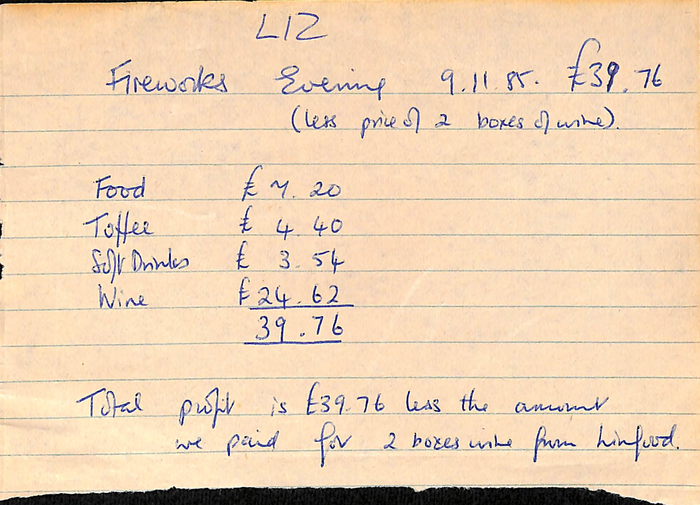 LIZ
Fireworks Evening 9.11.85. £39.76
(less price of 2 boxes of wine).
Food £7.20
Toffee £4.40
Soft Drinks £3.54
Wine £24.62
39.76
Total profit is £39.76 less the amount
we paid for 2 boxes wine from Linfood.